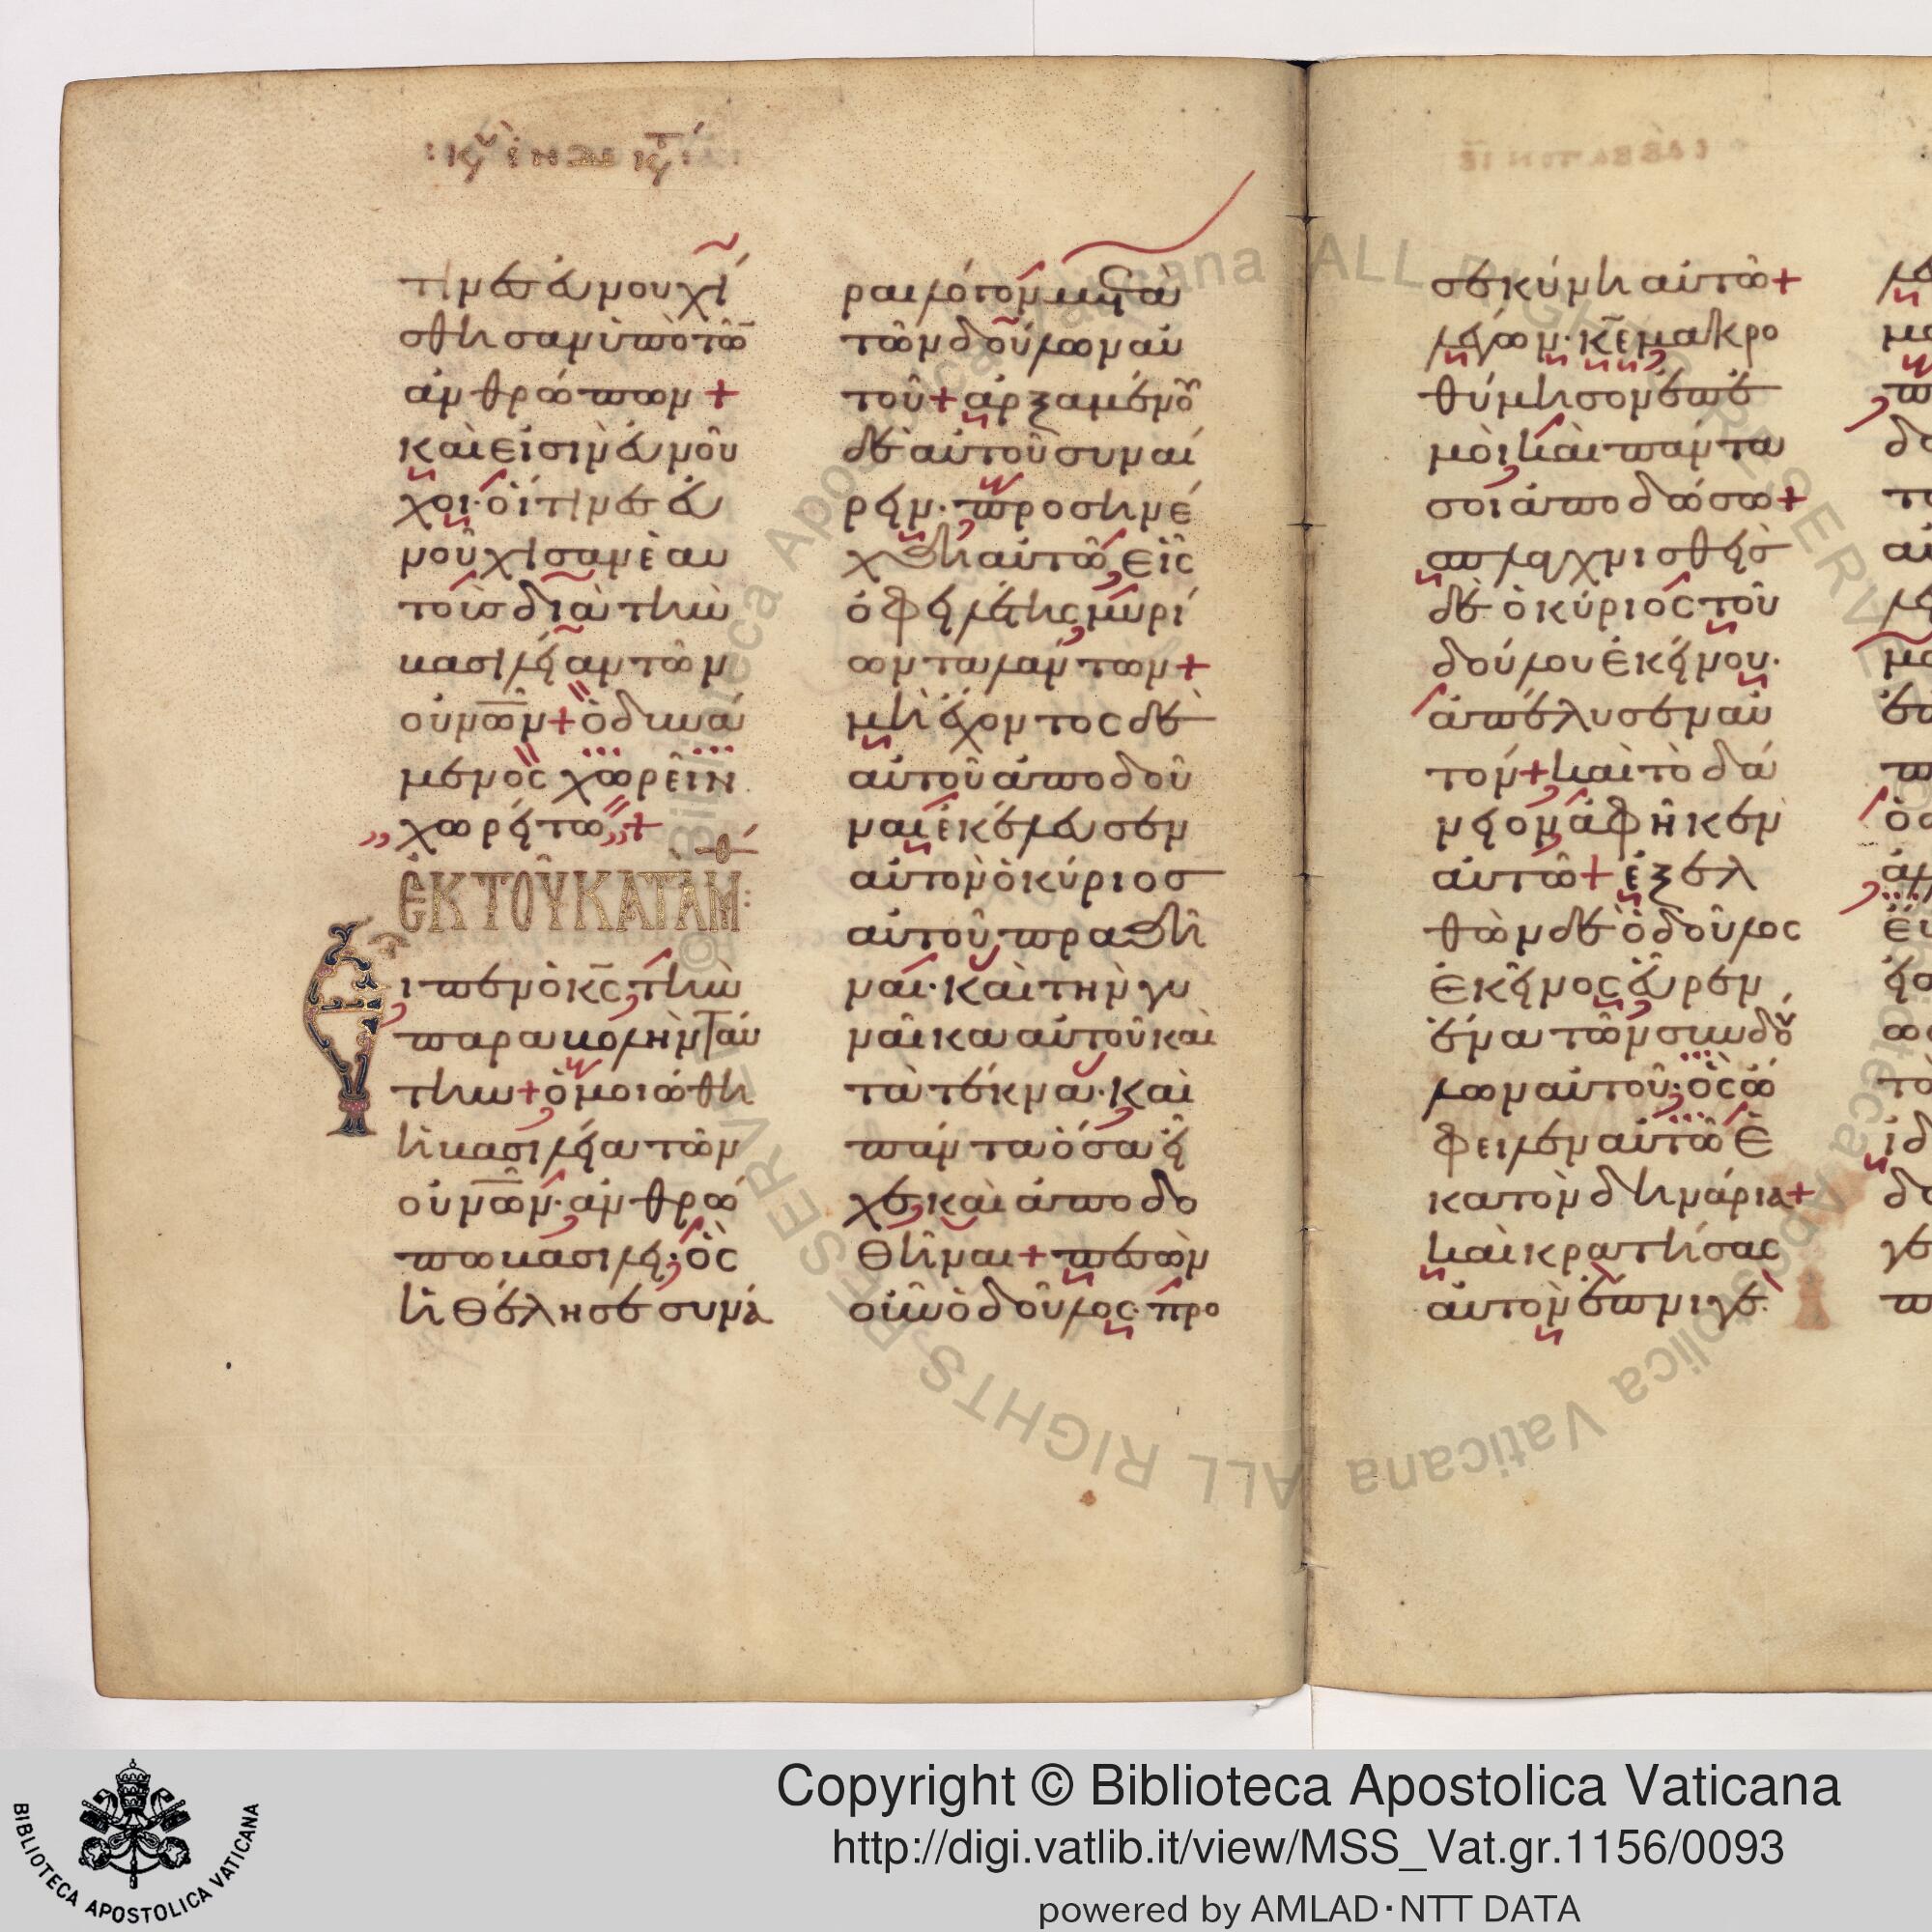 τινες ευνουχί
σθησαν ὑπὸ τῶν
ἀνθρώπων +
καὶ εἰσὶν εὐνοῦ
χοι· οἵτινες εὐ
νούχισαν ἑαυ
τοὺς διὰ τὴν
βασιλείαν τῶν
οὐνῶν + ὁ δυνά
μενος χωρεῖν
χωρείτω +
ἐκ τοῦ κατὰ Μ
Εἶπεν ὁ κς τὴν
παραβολὴν ταύ
την + ὁμοιώθη
ἡ βασιλεία τῶν
οὐνῶν· ἀνθρώ
πω βασιλεῖ· ὃς
ἠθέλησε συνᾶ
ραι λόγον μετὰ
τῶν δούλων αὐ
τοῦ + ἀρξαμένου
δὲ αὐτοῦ συναί
ρειν· προσηνέ
χθη αὐτῶ εἷς
ὀφειλέτης μυρί
ων ταλάντων +
μὴ ἔχοντος δὲ
αὐτοῦ ἀποδοῦ
ναι ἐκέλευσεν
αὐτὸν ὁ κύριος
αὐτοῦ πραθῆ
ναι· καὶ τὴν γυ
ναῖκα αὐτοῦ καὶ
τὰ τέκνα· καὶ
πάντα ὅσα εἶ
χε καὶ ἀποδο
θῆναι + πεσὼν
οὖν ὁ δοῦλος· προ
σεκύνη αὐτῶ +
λέγων· κε μακρο
θύμησον ἐπ' ἐ
μοὶ καὶ πάντα
σοι ἀποδώσω +
σπλαγχνισθεὶς
δὲ ὁ κύριος τοῦ
δούλου ἐκείνου·
ἀπέλυσεν αὐ
τόν + καὶ τὸ δά
νειον ἀφῆκεν
αὐτῶ + ἐξελ
θὼν δὲ ὁ δοῦλος
ἐκεῖνος εὗρεν
ἕνα τῶν συνδού
λων αὐτοῦ· ὃς ὤ
φειλεν αὐτῶ ἑ
κατὸν δηνάρια +
καὶ κρατήσας
αὐτὸν ἔπνιγε·
Copyright © Biblioteca Apostolica Vaticana
http://digi.vatlib.it/view/MSS_Vat.gr.1156/0093
powered by AMLAD·NTT DATA
BIBLIOTECA APOSTOLICA VATICANA